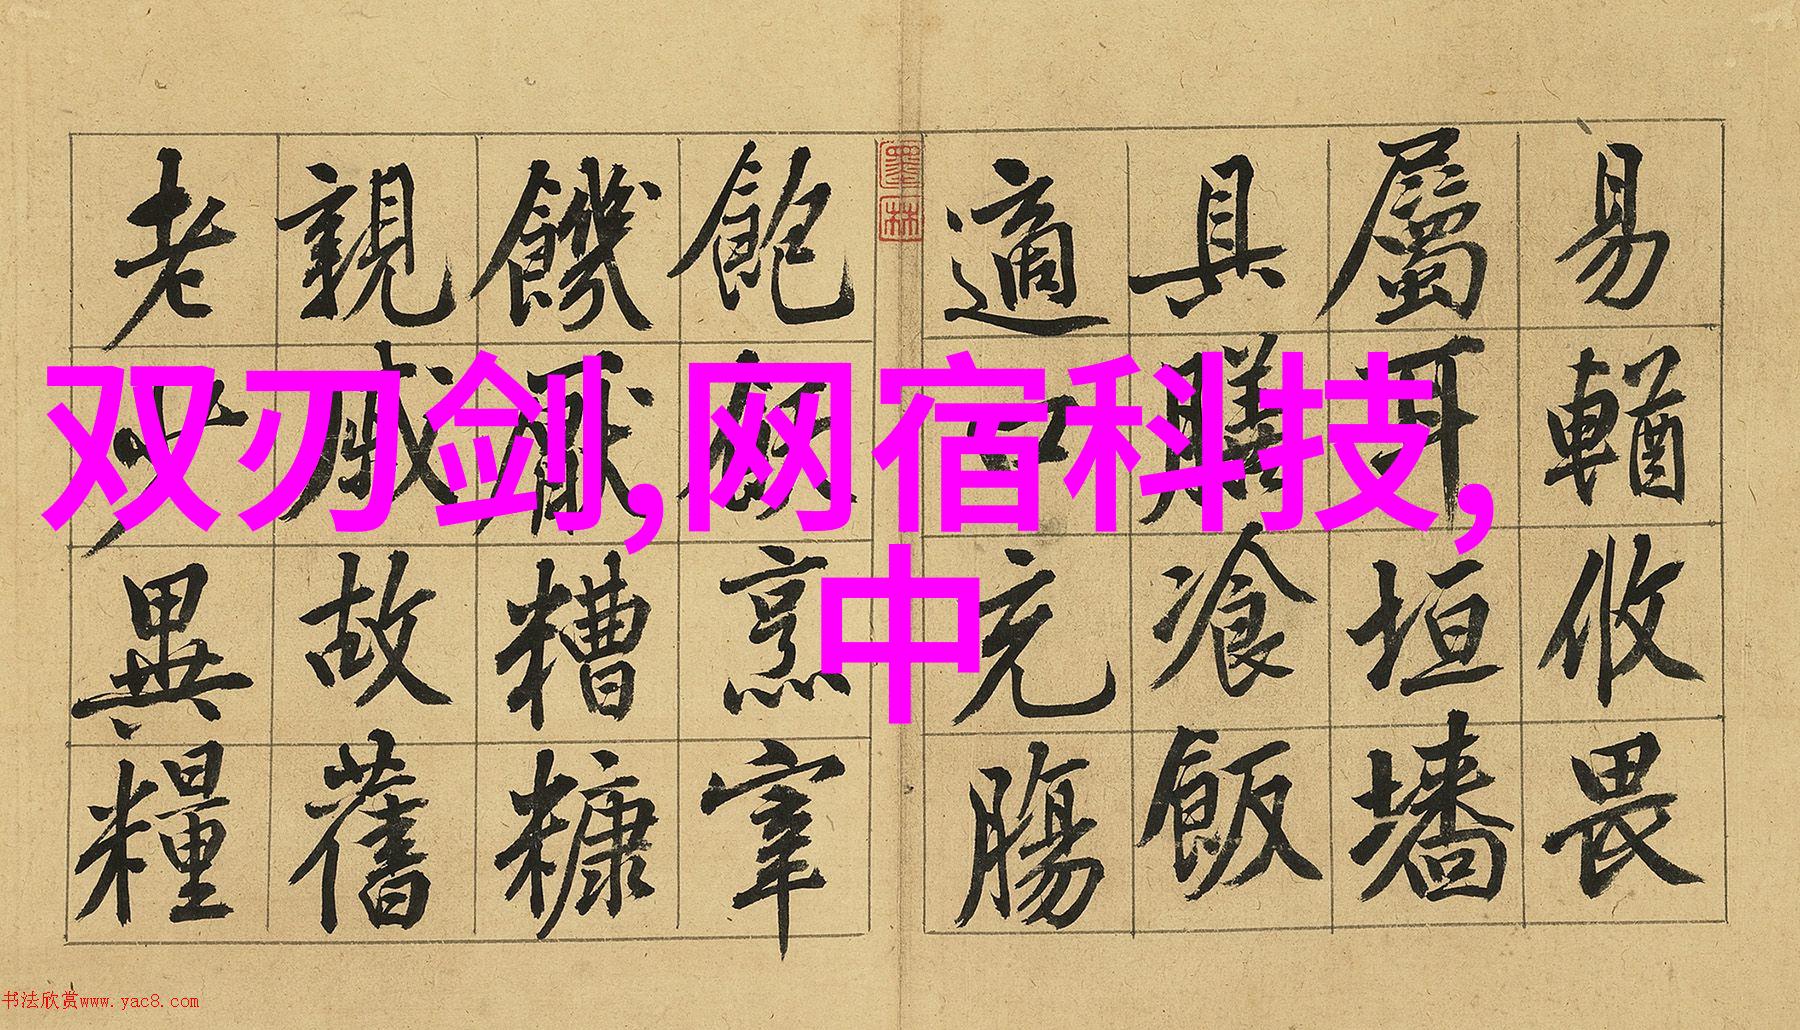 双刃剑,网宿科技,
中
易輶攸畏
屬耳垣墻
具膳飡飯
適口充腸
墨林
飽飫烹宰
饑厭糟糠
親戚故舊
老少異糧
书法欣赏www.yac8.com